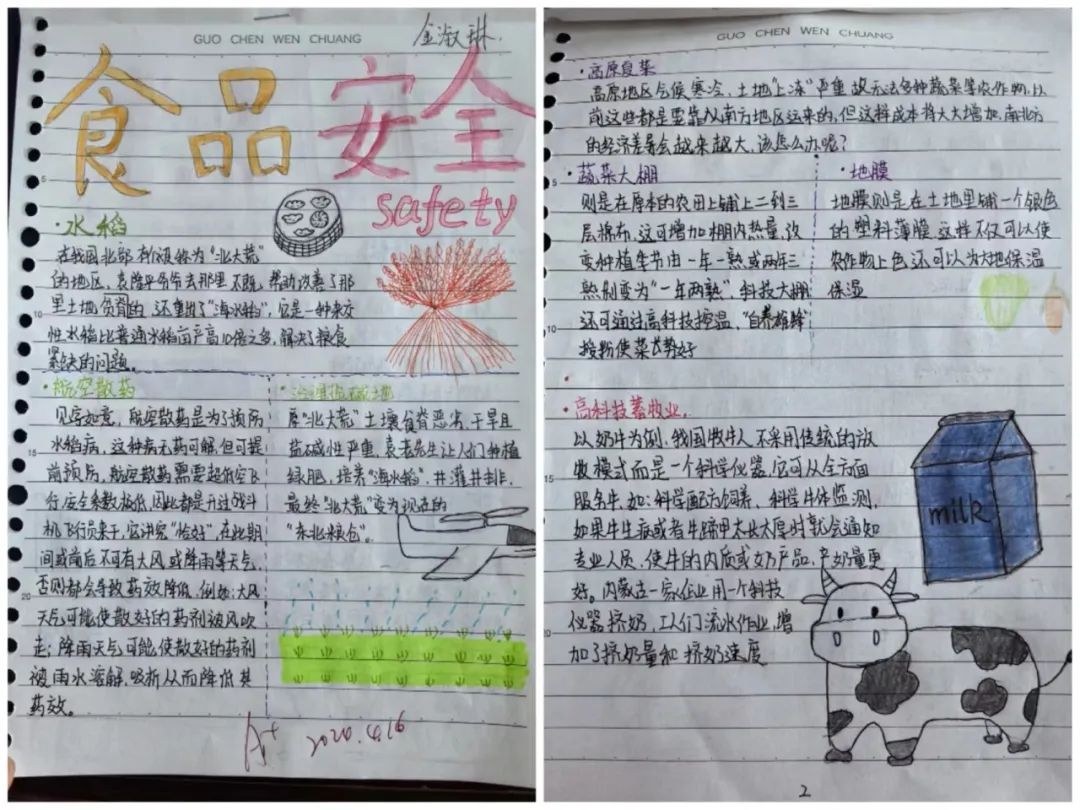 GUO CHEN WEN CHUANG
金淑琳.
食品安全
safety
·水稻
在我国北部有个被称为“北大荒”
的地区,袁隆平爷爷去那里不既,帮助改善了那
里土地贫脊的,还重出了“海水稻”,它是一种杂交
性水稻比普通水稻亩产高10倍之多,解决了粮食
紧缺的问题。
·航空散药
见字如意,航空散药是为了预防
水稻病,这种病无药可解,但可提
前预防,航空散药需要超低空飞
行,安全系数极低,因此都是开过战斗
机飞行员来干,它讲究“恰好”,在此期
间或前后不可有大风或降雨等天气,
否则都会导致药效降低,例如:大风
天气可能使散好的药剂被风吹
走;降雨天气可能使散好的药剂
被雨水溶解,吸折从而降低其
药效。
·治理盐碱土地
原“北大荒”土壤贫脊恶劣,干旱且
盐碱性严重,袁老先生让人们种植
绿肥,培养“海水稻”,井灌井排,
最终“北大荒”变为现在的
“东北粮仓”。
A+ 2020.4.16
GUO CHEN WEN CHUANG
·高原夏菜
高原地区气候寒冷,土地“上冻”严重故无法多种蔬菜等农作物,以
前这些都是要靠从南方地区运来的,但这样成本将大大增加,南北方
的经济差异会越来越大,该怎么办呢?
·蔬菜大棚
则是在原本的农田上铺上二到三
层棉布,这可增加棚内热量,改
变种植季节由一年一熟或两年三
熟则变为“一年两熟”,科技大棚
还可通过高科技控温,“自养雄蜂”
授粉使菜长势好
·地膜
地膜则是在土地里铺一个银色
的塑料薄膜,这样不仅可以使
农作物上色还可以为大地保温
保湿
·高科技畜牧业.
以奶牛为例,我国牧牛人不采用传统的放
牧模式而是一个科学仪器,它可从全方面
服务牛,如:科学配方饲养,科学牛体监测,
如果牛生病或者牛蹄甲太长太厚时就会通知
专业人员,使牛的内质或奶产品,产奶量更
好。内蒙古一家企业用一个科技
仪器挤奶,工人们流水作业,增
加了挤奶量和挤奶速度
milk
2